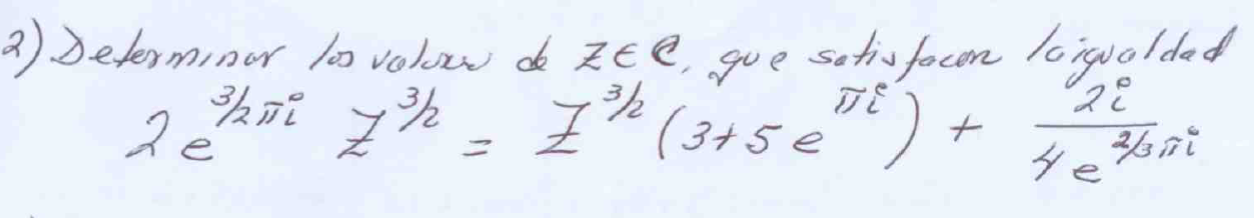 2) Determinar los valores de Z ∈ ℂ, que satisfacen la igualdad
2e^{3/2 πi} Z^{3/2} = Z^{3/2} (3+5e^{πi}) + \frac{2i}{4e^{2/3 πi}}